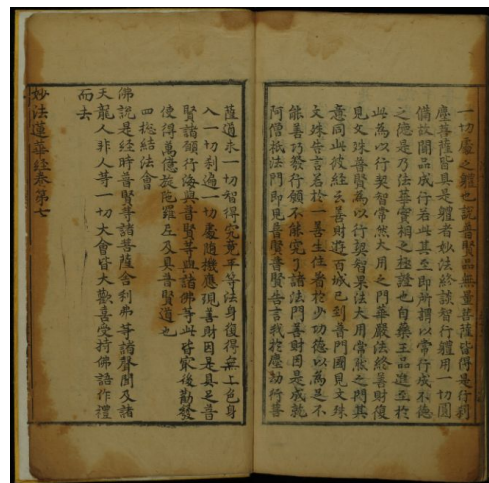 一切處之體也說普賢品無量菩薩皆得是行利
塵菩薩皆具是體者妙法終談智行體用一切圓
備故聞品成行若此其至即所謂以常行成不德
之德是乃法華實相之極證也自藥王品進至於
此爲以行契智常然大用之門華嚴法會善財復
見文殊普賢爲以行契智果法大用常然之門其
意同此彼經云善財遊百城已到普門國見文殊
文殊告言若於一善生住著於少功德以爲足不
能善巧發行願不能究了諸法門善財因是成就
阿僧祇法門即見普賢普賢告言我於塵劫行菩
薩道求一切智得究竟平等法身復得無上色身
入一切刹遍一切處隨機應現善財因是具足普
賢諸願行海與普賢等與諸佛等此皆家後勸發
使得萬億旋陁羅尼及具普賢道也
四揔結法會
佛說是經時普賢等諸菩薩舍利弗等諸聲聞及諸
天龍人非人等一切大會皆大歡喜受持佛語作禮
而去
妙法蓮華經卷第七